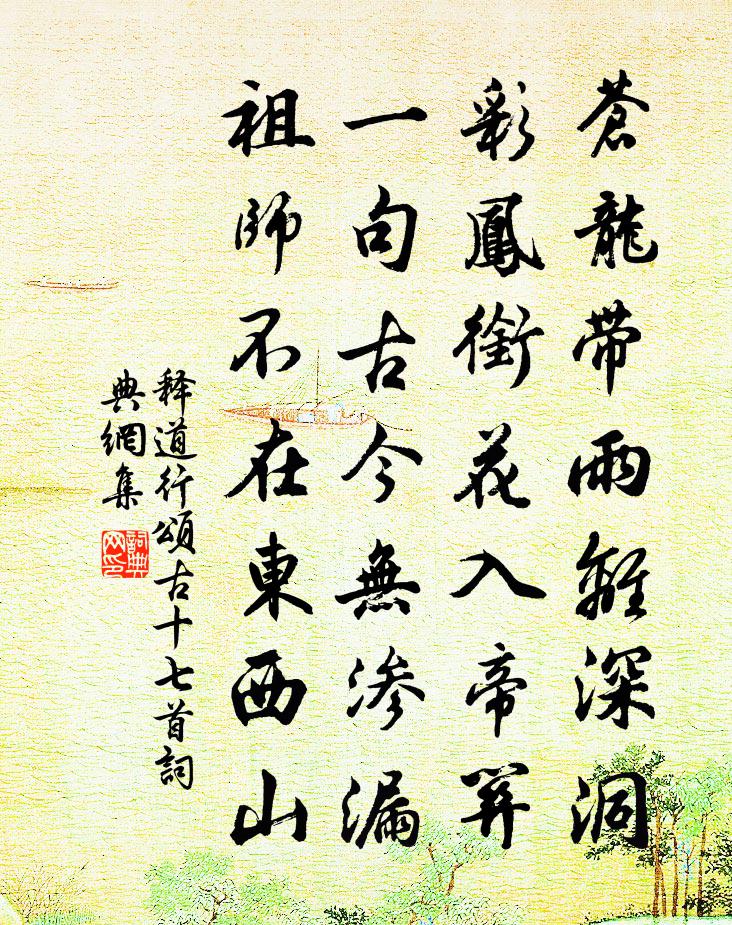 蒼龍带雨離深洞
彩鳳銜花入帝關
一句古今無渗漏
祖師不在東西山
释道行頌古十七首詞
典網集
詞典
网印